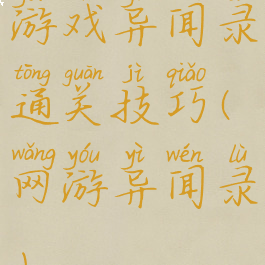 游戏异闻录
tōng guān jì qiǎo
通关技巧(
wǎng yóu yì wén lù
网游异闻录
)